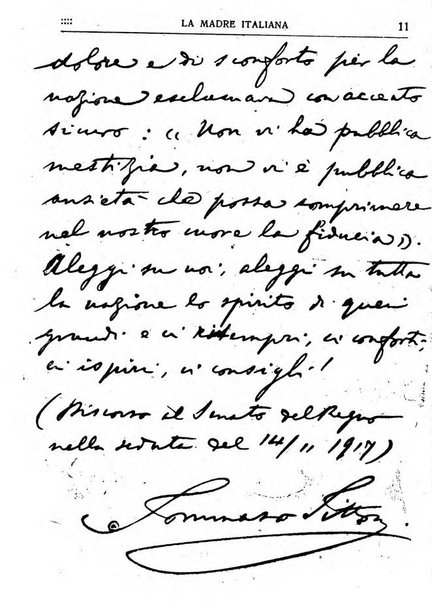 LA MADRE ITALIANA 11
dolore e di sconforto per la
nazione esclamava con accento
sicuro: « Non vi ha pubblica
mestizia, non vi è pubblica
ansietà che possa comprimere
nel nostro cuore la fiducia».
Aleggi su noi, aleggi su tutta
la nazione lo spirito di quei
grandi e ci ritempri, ci conforti,
ci ispiri, ci consigli!
(Discorso al Senato del Regno
nella seduta del 14/11 1917)
Tommaso Tittoni.